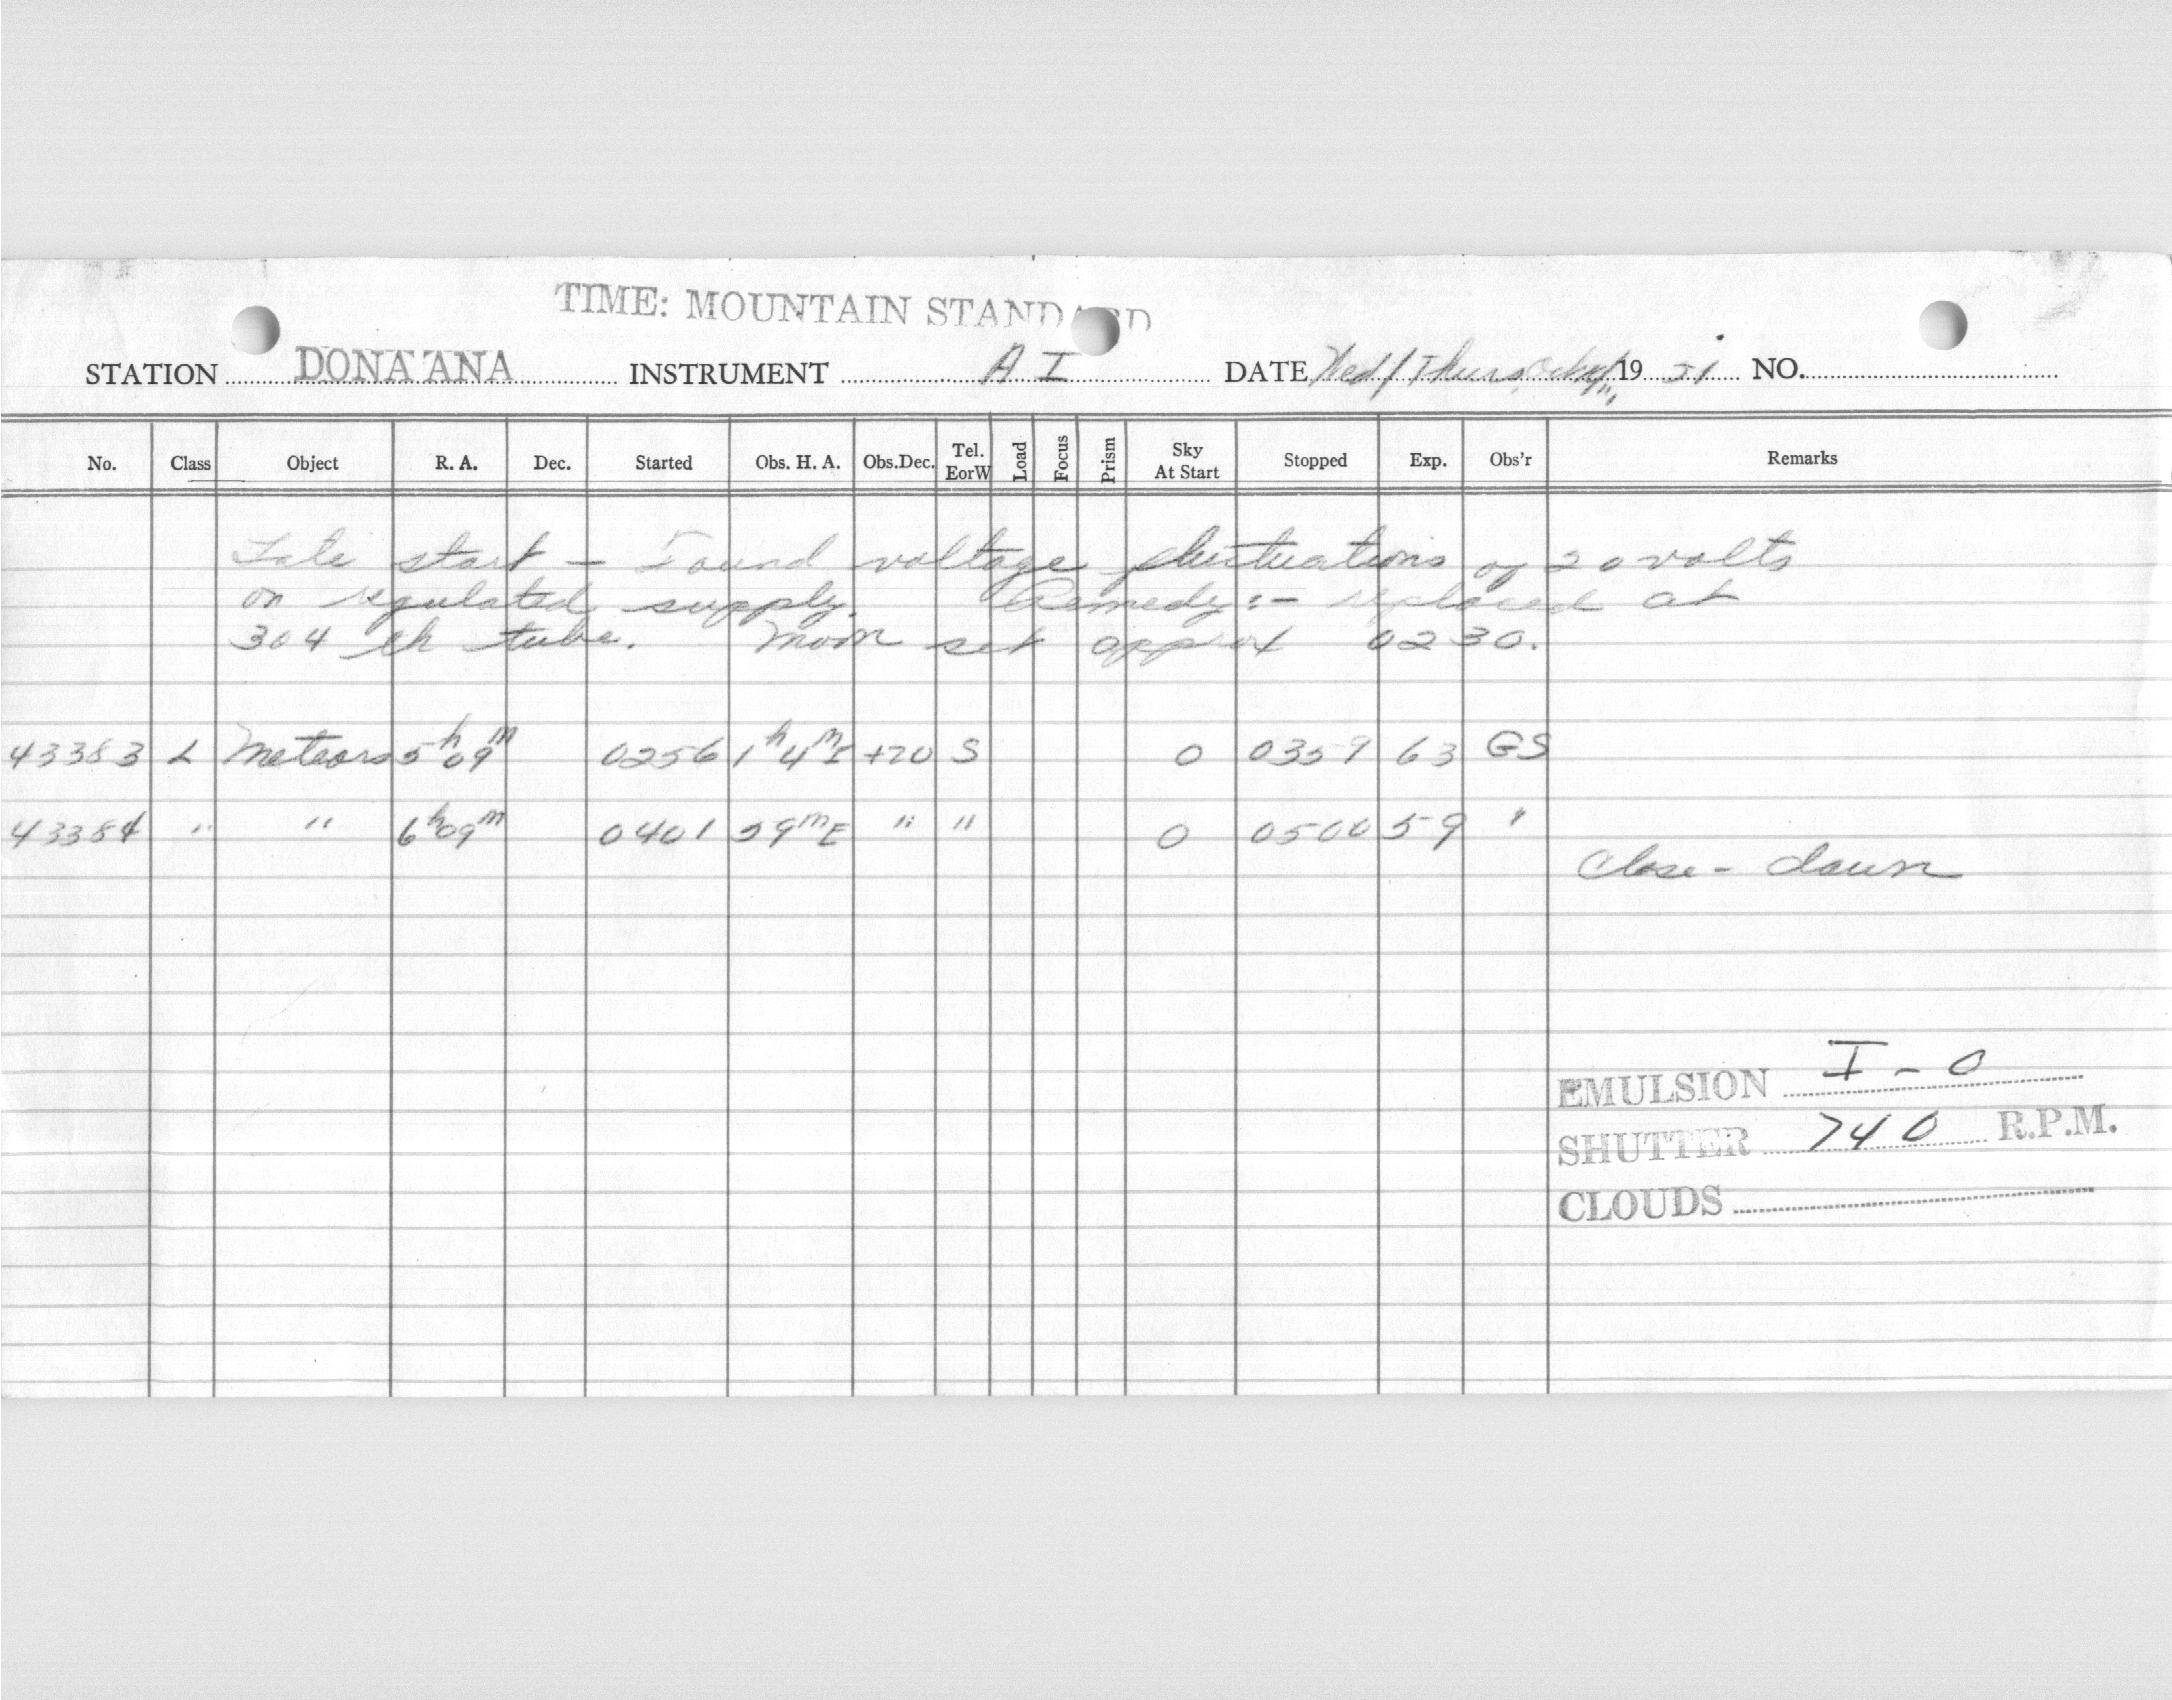 TIME: MOUNTAIN STANDARD
STATION DONA ANA INSTRUMENT A I DATE Wed/Thurs 19 51 NO.
No. Class Object R. A. Dec. Started Obs. H. A. Obs.Dec. Tel. EorW Load Focus Prism Sky At Start Stopped Exp. Obs'r Remarks
Late start - Found voltage fluctuations of 20 volts
on regulated supply. Remedy:- replaced at
304 tube. Moon set approx 0230.
43383 L Meteors 5h09m 0256 1h4mE +20 S 0 0359 63 GS
43384 " " 6h09m 0401 59mE " " 0 0500 59 "
Close - dawn
EMULSION I - O
SHUTTER 740 R.P.M.
CLOUDS